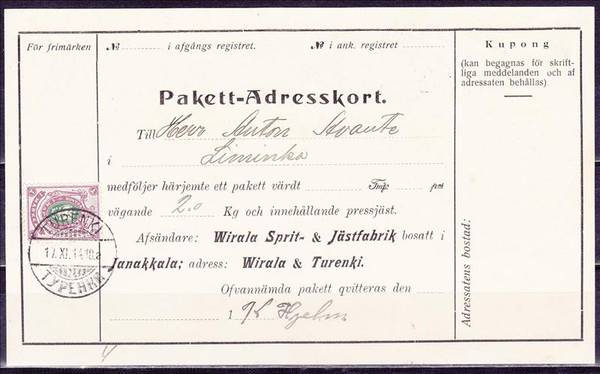 För frimärken
№ i afgångs registret. № i ank. registret
Kupong
(kan begagnas för skrift-
liga meddelanden och af
adressaten behållas).
Pakett-Adresskort.
Till Herr Anton Kvante
i Liminka
medföljer härjemte ett pakett värdt Fmk pni
vägande 2.0 Kg och innehållande pressjäst.
Afsändare: Wirala Sprit- & Jästfabrik bosatt i
Janakkala; adress: Wirala & Turenki.
Ofvannämda pakett qvitteras den
1 Hjelm
Adressatens bostad:
TURENKI
17.XI.14.10.2
ТУРЕНКИ